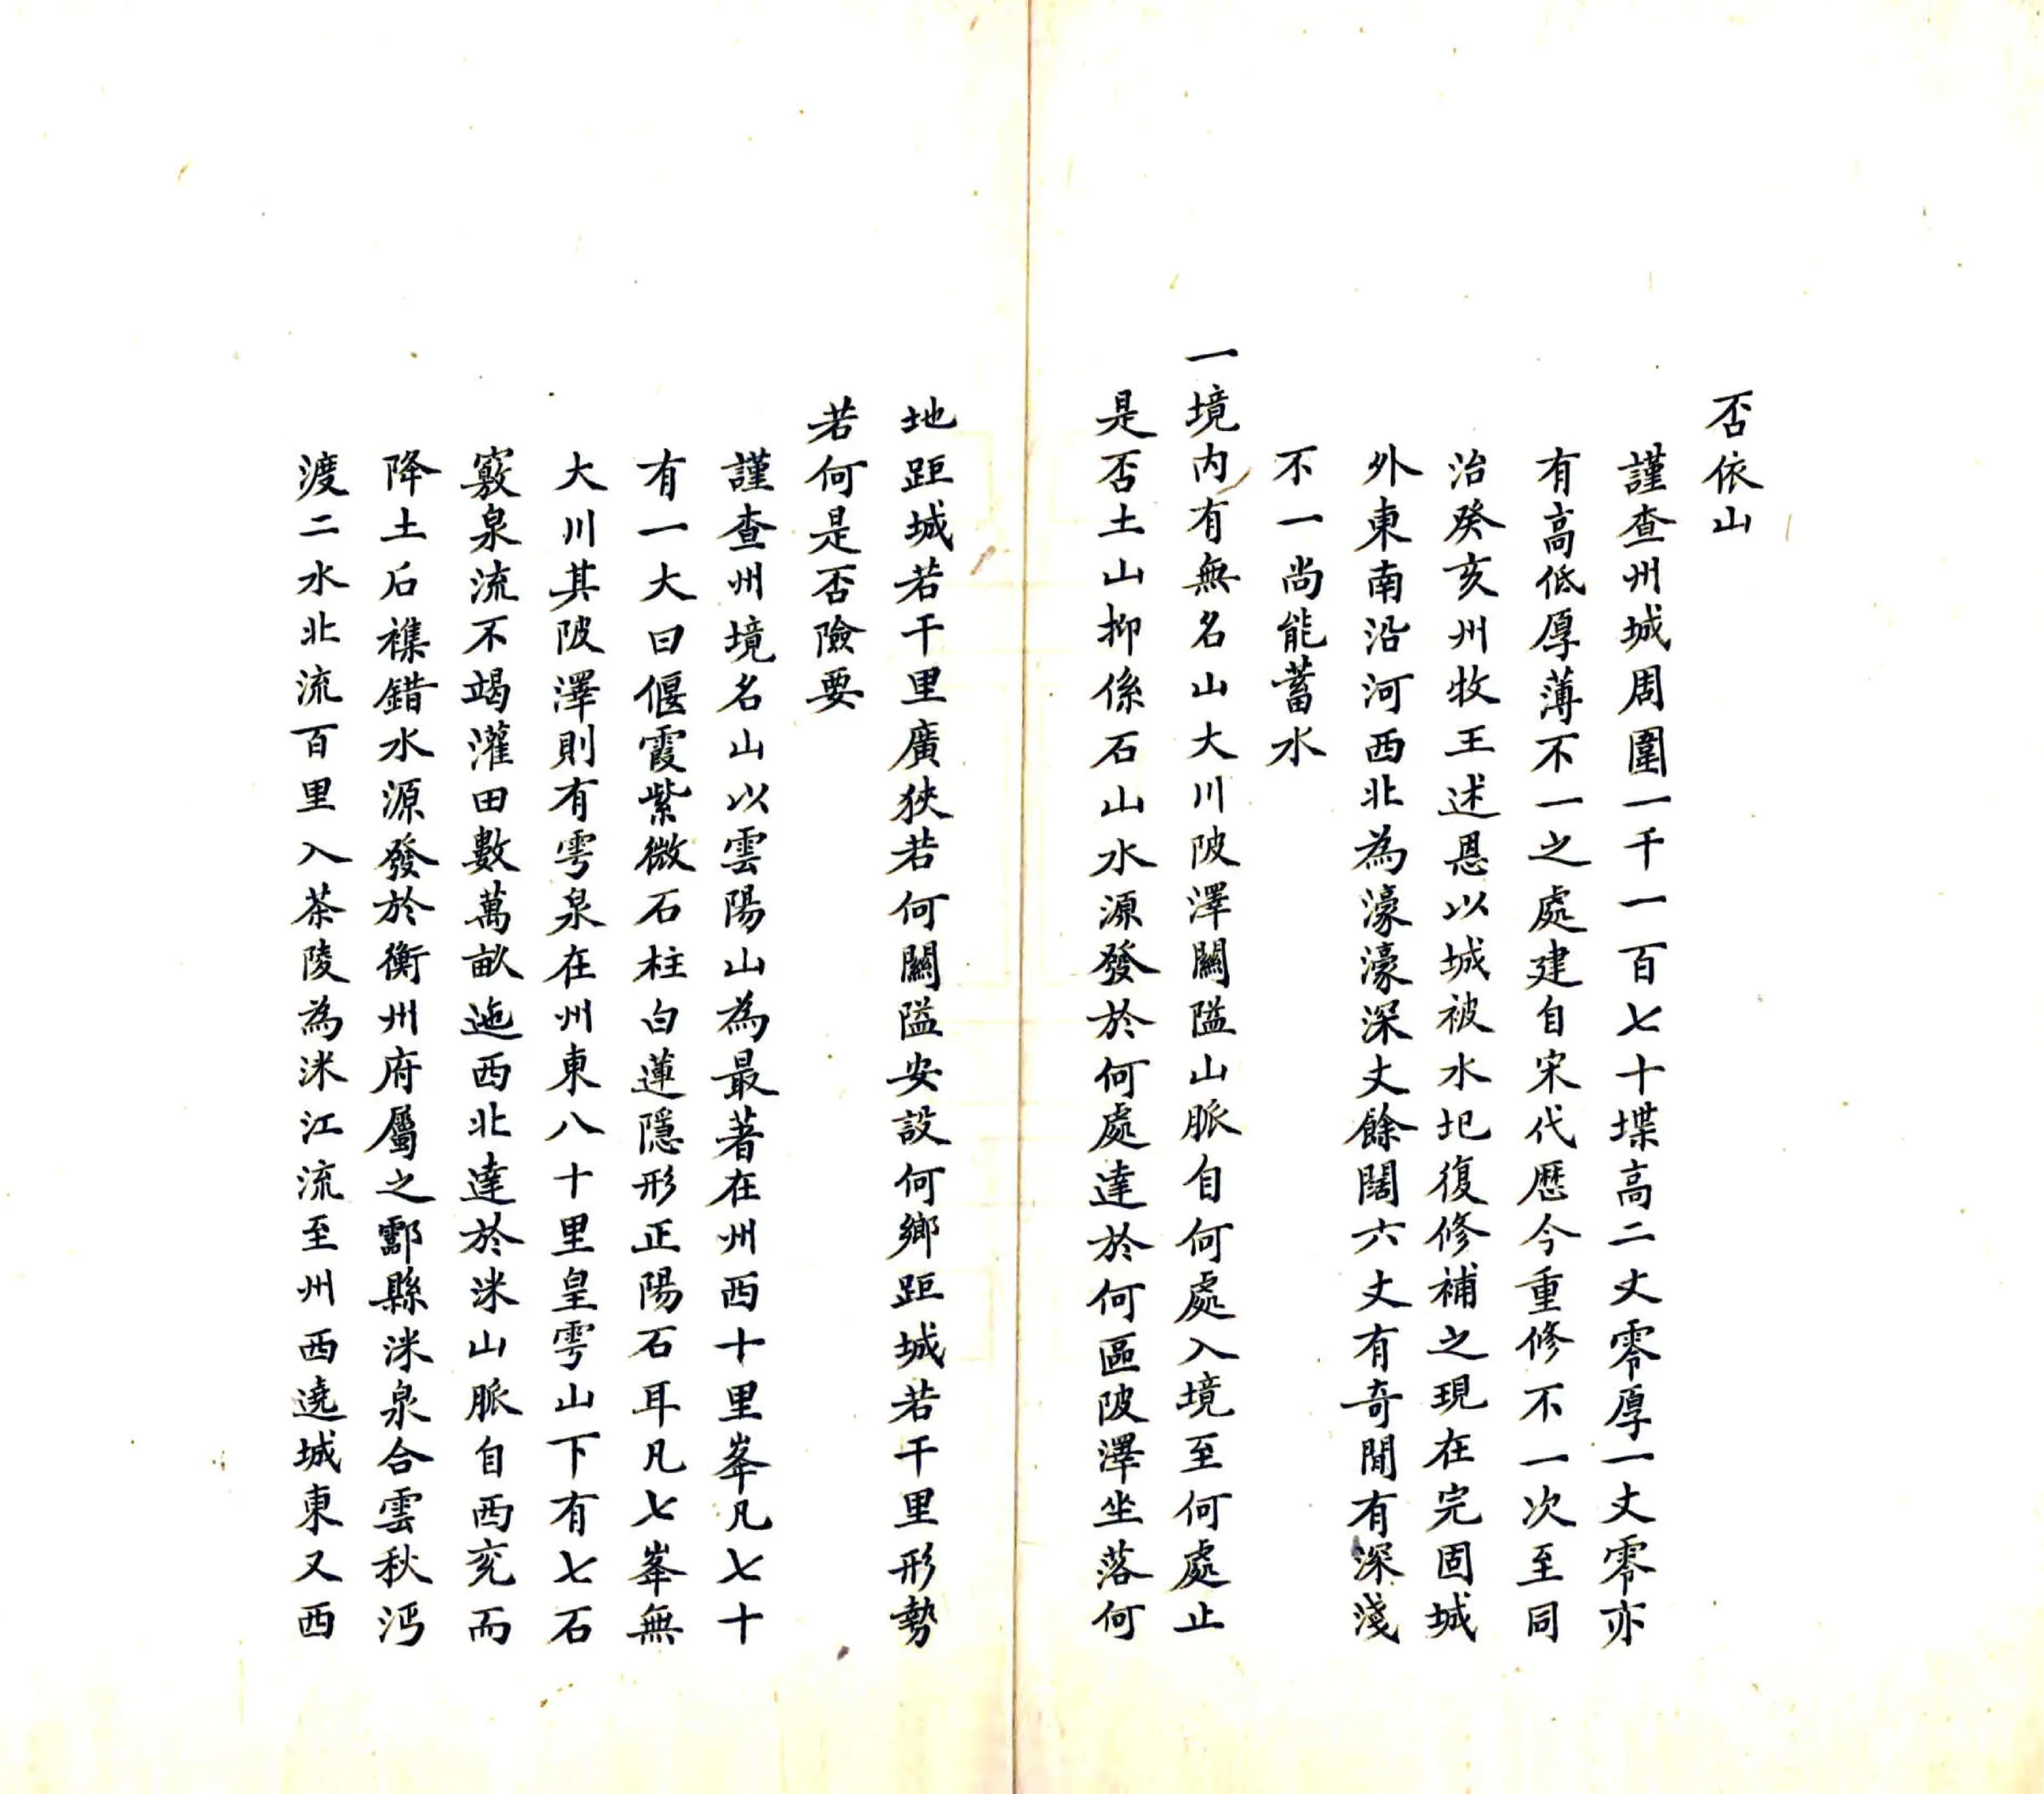 否依山
謹查州城周圍一千一百七十堞高二丈零厚一丈零亦
有高低厚薄不一之處建自宋代歷今重修不一次至同
治癸亥州牧王述恩以城被水圮復修補之現在完固城
外東南沿河西北為濠濠深丈餘闊六丈有奇間有深淺
不一尚能蓄水
一境內有無名山大川陂澤關隘山脈自何處入境至何處止
是否土山抑係石山水源發於何處達於何區陂澤坐落何
地距城若干里廣狹若何關隘安設何鄉距城若干里形勢
若何是否險要
謹查州境名山以雲陽山為最著在州西十里峯凡七十
有一大曰偃霞紫微石柱白蓮隱形正陽石耳凡七峯無
大川其陂澤則有雩泉在州東八十里皇雩山下有七石
竅泉流不竭灌田數萬畝迤西北達於洣山脈自西兖而
降土石襍錯水源發於衡州府屬之酃縣洣泉合雲秋沔
渡二水北流百里入茶陵為洣江流至州西遶城東又西